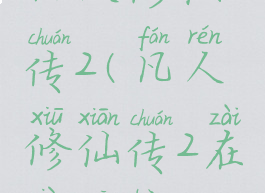 chuán fán rén
传2(凡人
xiū xiān chuán zài
修仙传2在